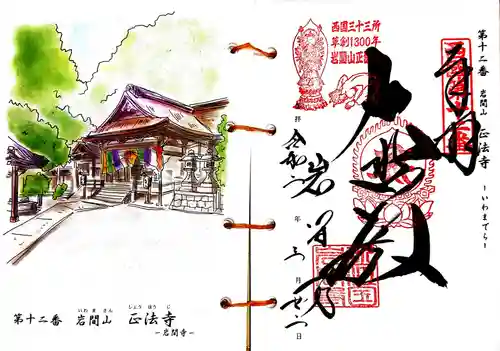 第十二番 岩間山 正法寺 -いわまでら-
西国三十三所
草創1300年
岩間山正
奉拝
大悲殿
岩間寺
拝
令和二年三月廿二日
いわ ま さん しょう ほう じ
第十二番 岩間山 正法寺
-岩間寺-